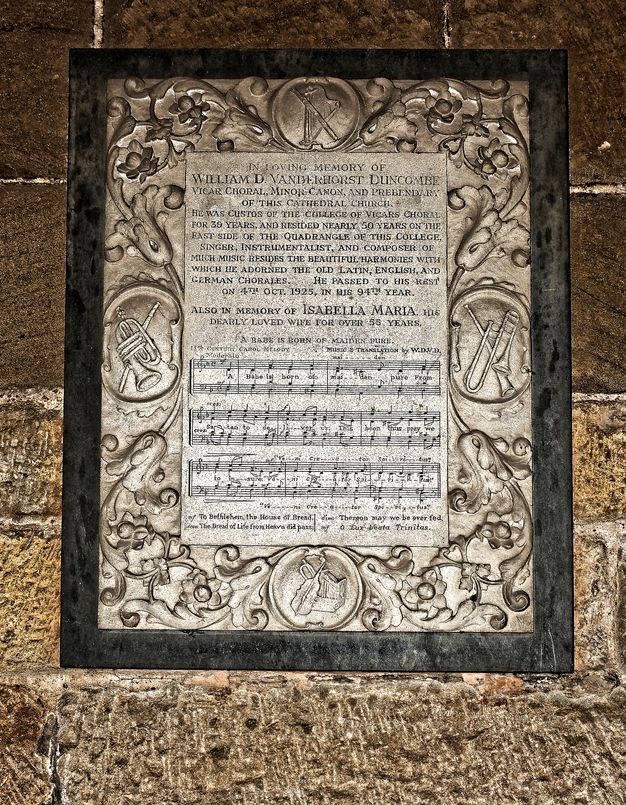 IN LOVING MEMORY OF
WILLIAM D. VANDERHORST DUNCOMBE
VICAR CHORAL, MINOR CANON, AND PREBENDARY
OF THIS CATHEDRAL CHURCH.
HE WAS CUSTOS OF THE COLLEGE OF VICARS CHORAL
FOR 39 YEARS, AND RESIDED NEARLY 50 YEARS ON THE
EAST SIDE OF THE QUADRANGLE OF THIS COLLEGE.
SINGER, INSTRUMENTALIST, AND COMPOSER OF
MUCH MUSIC BESIDES THE BEAUTIFUL HARMONIES WITH
WHICH HE ADORNED THE OLD LATIN, ENGLISH, AND
GERMAN CHORALES. HE PASSED TO HIS REST
ON 4TH OCT. 1925, IN HIS 94TH YEAR.
ALSO IN MEMORY OF ISABELLA MARIA, HIS
DEARLY LOVED WIFE FOR OVER 55 YEARS.
"A BABE IS BORN OF MAIDEN PURE.
CENTURY, CAROL MELODY MUSIC & TRANSLATION BY W.D.V.D.
Moderato mai - den
A Babe is born of mai - den pure From
Sa - tan to us This boon thus pray we
"Ve - ni Cre - a - tor Spi - ri - tus"
to
"Ve - ni Cre - a - tor Spi - ri - tus"
mf To Bethlehem, the House of Bread, dim Thereon may we be ever fed,
The Bread of Life from Heav'n did pass; mf O Lux beata Trinitas.